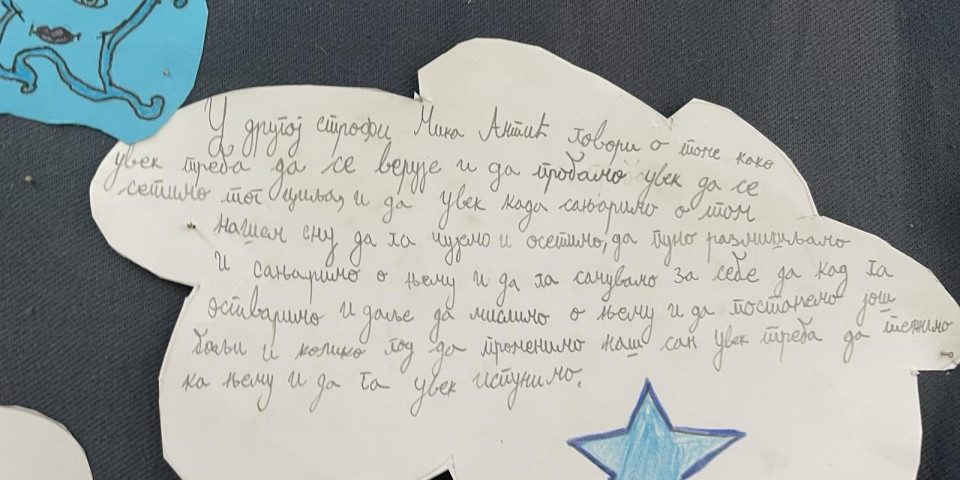 У другој строфи Мика Антић говори о томе како
увек треба да се верује и да пробамо увек да се
сетимо тог циља, и да увек када сањаримо о том
нашем сну да га чујемо и осетимо, да пуно размишљамо
и сањаримо о њему и да га сачувамо за себе да кад га
остваримо и даље да мислимо о њему и да постанемо још
бољи и колико год да променимо наш сан увек треба да тежимо
ка њему и да га увек испунимо.